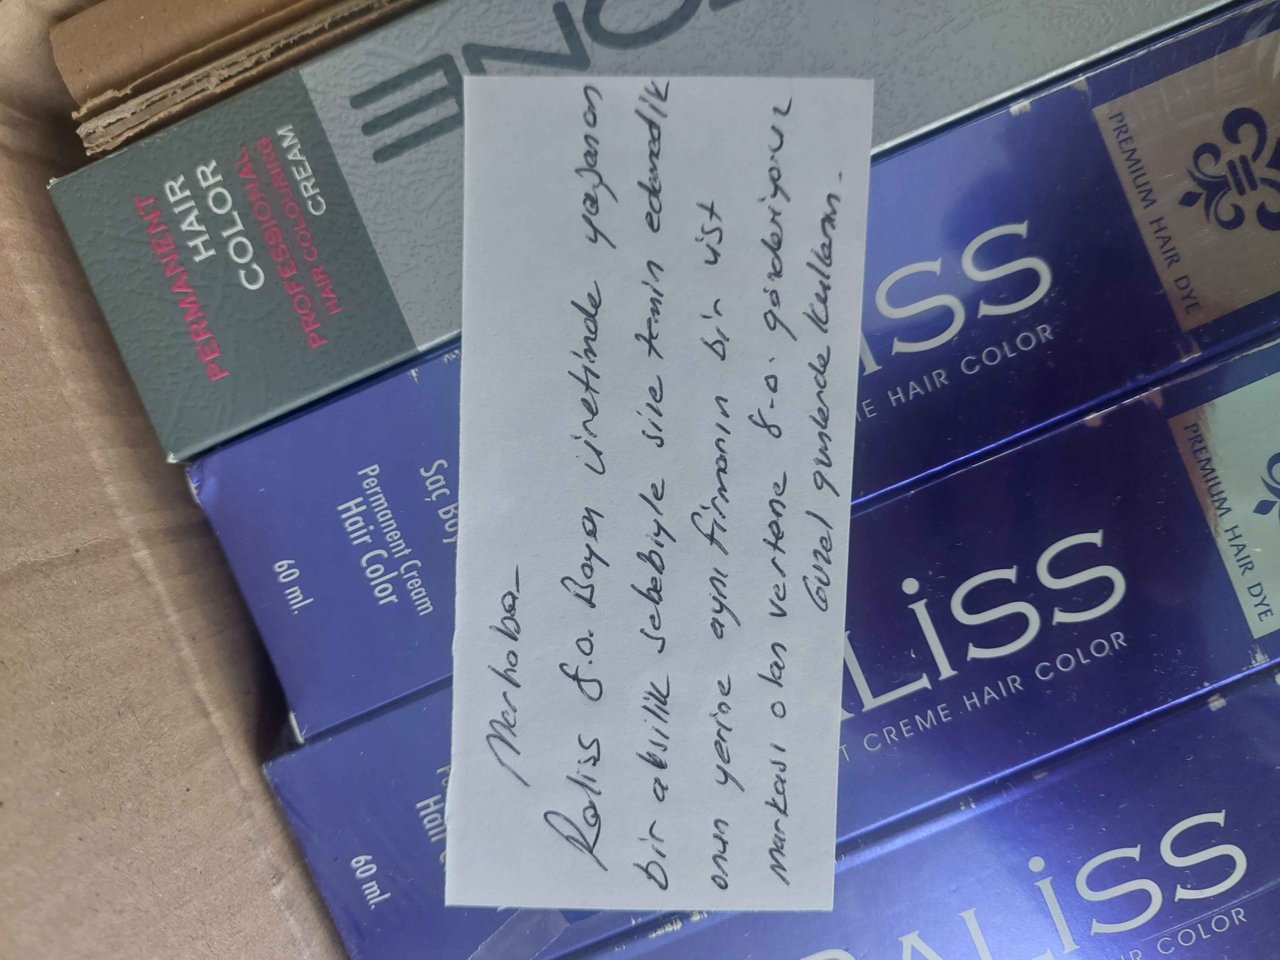 Merhaba
Raliss 8.0. Boya üretiminde yaşanan
bir aksilik sebebiyle size temin edemedik
onun yerine aynı firmanın bir üst
markası olan vertene 8-0. gönderiyoruz
Güzel günlerde kullanın.
PERMANENT
HAIR
COLOR
PROFESSIONAL
HAIR COLOURING
CREAM
PREMIUM HAIR DYE
İSS
ME HAIR COLOR
Saç Boy
Permanent Cream
Hair Color
60 ml.
PREMIUM HAIR DYE
ALİSS
T CREME HAIR COLOR
Hair
60 ml.
RALİSS
IR COLOR